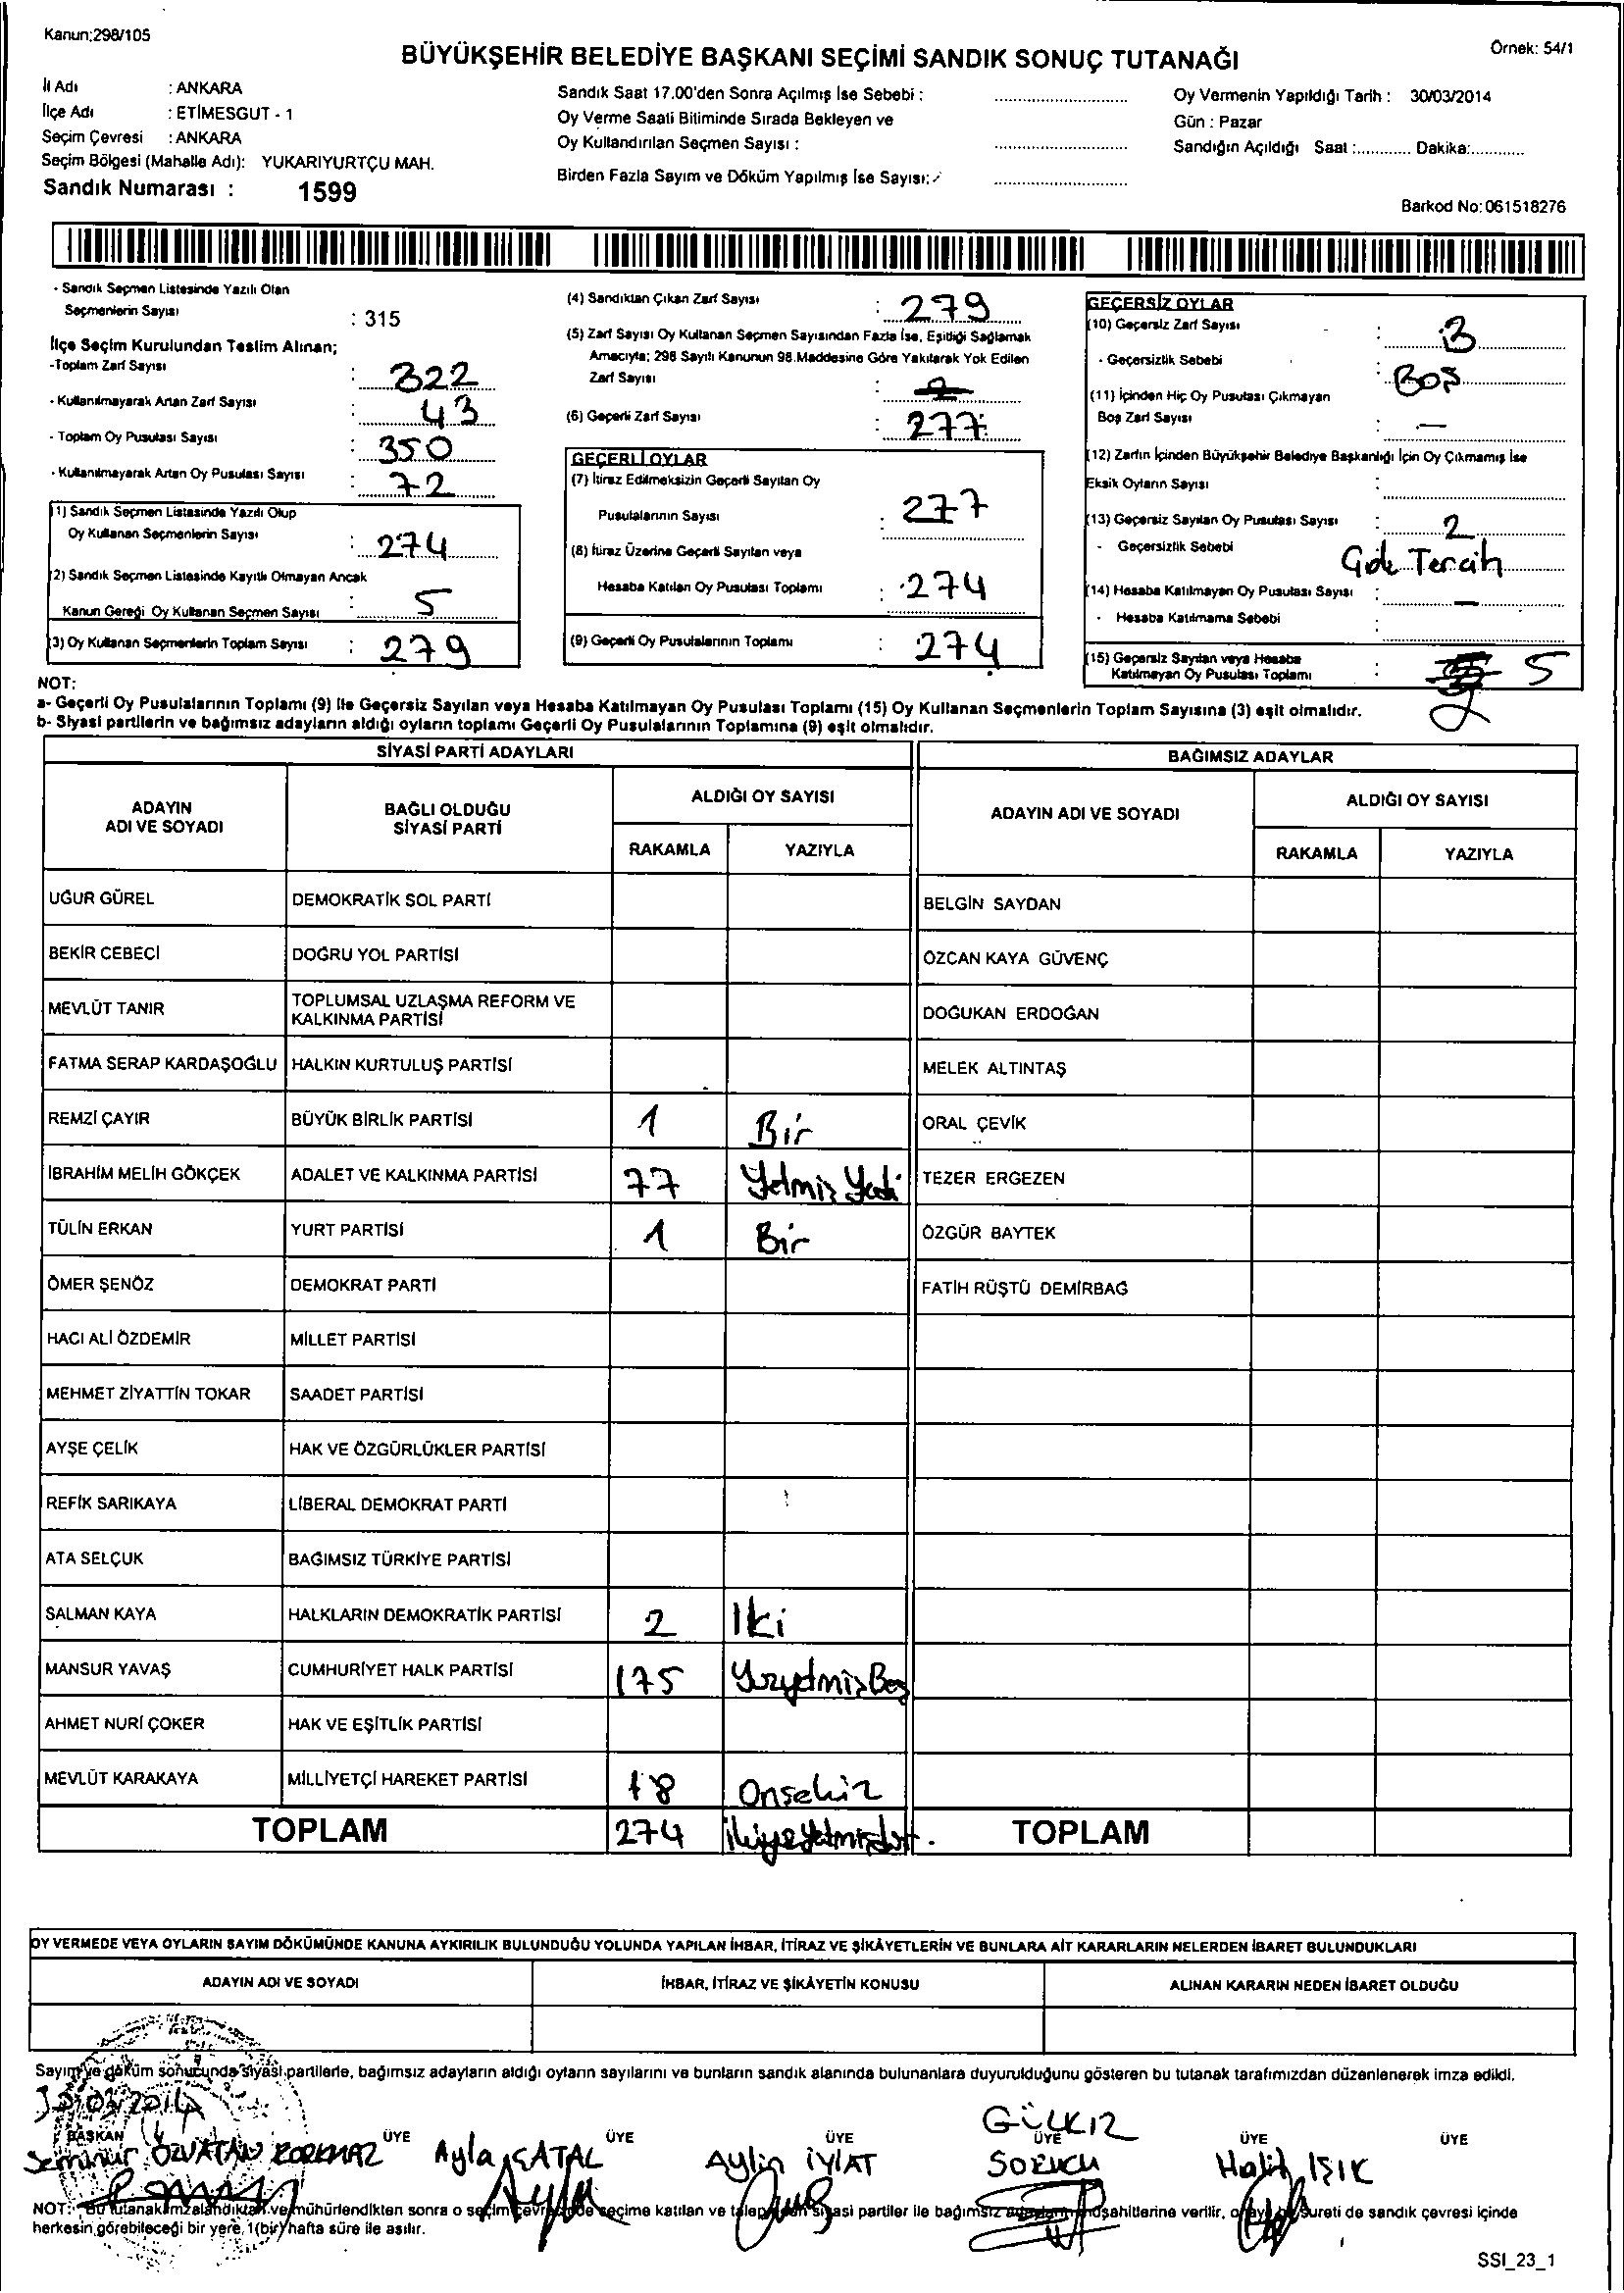 Kanun:298/105
Örnek: 54/1
BÜYÜKŞEHİR BELEDİYE BAŞKANI SEÇİMİ SANDIK SONUÇ TUTANAĞI
İl Adı : ANKARA
İlçe Adı : ETİMESGUT - 1
Seçim Çevresi : ANKARA
Seçim Bölgesi (Mahalle Adı): YUKARIYURTÇU MAH.
Sandık Numarası : 1599
Sandık Saat 17.00'den Sonra Açılmış İse Sebebi :
Oy Verme Saati Bitiminde Sırada Bekleyen ve
Oy Kullandırılan Seçmen Sayısı :
Birden Fazla Sayım ve Döküm Yapılmış İse Sayısı:
Oy Vermenin Yapıldığı Tarih : 30/03/2014
Gün : Pazar
Sandığın Açıldığı Saat :............ Dakika:............
Barkod No:061518276
- Sandık Seçmen Listesinde Yazılı Olan
Seçmenlerin Sayısı : 315
İlçe Seçim Kurulundan Teslim Alınan;
-Toplam Zarf Sayısı : 322
- Kullanılmayarak Artan Zarf Sayısı : 43
- Toplam Oy Pusulası Sayısı : 350
- Kullanılmayarak Artan Oy Pusulası Sayısı : 72
(1) Sandık Seçmen Listesinde Yazılı Olup
Oy Kullanan Seçmenlerin Sayısı : 274
(2) Sandık Seçmen Listesinde Kayıtlı Olmayan Ancak
Kanun Gereği Oy Kullanan Seçmen Sayısı : 5
(3) Oy Kullanan Seçmenlerin Toplam Sayısı : 279
(4) Sandıktan Çıkan Zarf Sayısı : 279
(5) Zarf Sayısı Oy Kullanan Seçmen Sayısından Fazla İse, Eşitliği Sağlamak
Amacıyla; 298 Sayılı Kanunun 98.Maddesine Göre Yakılarak Yok Edilen
Zarf Sayısı :
(6) Geçerli Zarf Sayısı : 277
GEÇERLİ OYLAR
(7) İtiraz Edilmeksizin Geçerli Sayılan Oy
Pusulalarının Sayısı : 277
(8) İtiraz Üzerine Geçerli Sayılan veya
Hesaba Katılan Oy Pusulası Toplamı : 274
(9) Geçerli Oy Pusulalarının Toplamı : 274
GEÇERSİZ OYLAR
(10) Geçersiz Zarf Sayısı : 3
- Geçersizlik Sebebi : Boş
(11) İçinden Hiç Oy Pusulası Çıkmayan
Boş Zarf Sayısı : —
(12) Zarfın İçinden Büyükşehir Belediye Başkanlığı İçin Oy Çıkmamış İse
Eksik Oyların Sayısı :
(13) Geçersiz Sayılan Oy Pusulası Sayısı : 2
- Geçersizlik Sebebi Tercih
(14) Hesaba Katılmayan Oy Pusulası Sayısı : —
- Hesaba Katılmama Sebebi :
(15) Geçersiz Sayılan veya Hesaba
Katılmayan Oy Pusulası Toplamı : 5
NOT:
a- Geçerli Oy Pusulalarının Toplamı (9) ile Geçersiz Sayılan veya Hesaba Katılmayan Oy Pusulası Toplamı (15) Oy Kullanan Seçmenlerin Toplam Sayısına (3) eşit olmalıdır.
b- Siyasi partilerin ve bağımsız adayların aldığı oyların toplamı Geçerli Oy Pusulalarının Toplamına (9) eşit olmalıdır.
SİYASİ PARTİ ADAYLARI BAĞIMSIZ ADAYLAR
ADAYIN ADI VE SOYADI BAĞLI OLDUĞU SİYASİ PARTİ ALDIĞI OY SAYISI ADAYIN ADI VE SOYADI ALDIĞI OY SAYISI
RAKAMLA YAZIYLA RAKAMLA YAZIYLA
UĞUR GÜREL DEMOKRATİK SOL PARTİ BELGİN SAYDAN
BEKİR CEBECİ DOĞRU YOL PARTİSİ ÖZCAN KAYA GÜVENÇ
MEVLÜT TANIR TOPLUMSAL UZLAŞMA REFORM VE KALKINMA PARTİSİ DOĞUKAN ERDOĞAN
FATMA SERAP KARDAŞOĞLU HALKIN KURTULUŞ PARTİSİ MELEK ALTINTAŞ
REMZİ ÇAYIR BÜYÜK BİRLİK PARTİSİ 1 Bir ORAL ÇEVİK
İBRAHİM MELİH GÖKÇEK ADALET VE KALKINMA PARTİSİ 77 Yetmiş Yedi TEZER ERGEZEN
TÜLİN ERKAN YURT PARTİSİ 1 Bir ÖZGÜR BAYTEK
ÖMER ŞENÖZ DEMOKRAT PARTİ FATİH RÜŞTÜ DEMİRBAĞ
HACI ALİ ÖZDEMİR MİLLET PARTİSİ
MEHMET ZİYATTİN TOKAR SAADET PARTİSİ
AYŞE ÇELİK HAK VE ÖZGÜRLÜKLER PARTİSİ
REFİK SARIKAYA LİBERAL DEMOKRAT PARTİ
ATA SELÇUK BAĞIMSIZ TÜRKİYE PARTİSİ
SALMAN KAYA HALKLARIN DEMOKRATİK PARTİSİ 2 Iki
MANSUR YAVAŞ CUMHURİYET HALK PARTİSİ 175 YüzyetmişBeş
AHMET NURİ ÇOKER HAK VE EŞİTLİK PARTİSİ
MEVLÜT KARAKAYA MİLLİYETÇİ HAREKET PARTİSİ 18 Onsekiz
TOPLAM 274 ikiyüzyetmişdört. TOPLAM
OY VERMEDE VEYA OYLARIN SAYIM DÖKÜMÜNDE KANUNA AYKIRILIK BULUNDUĞU YOLUNDA YAPILAN İHBAR, İTİRAZ VE ŞİKÂYETLERİN VE BUNLARA AİT KARARLARIN NELERDEN İBARET BULUNDUKLARI
ADAYIN ADI VE SOYADI İHBAR, İTİRAZ VE ŞİKÂYETİN KONUSU ALINAN KARARIN NEDEN İBARET OLDUĞU
Sayım ve döküm sonucunda siyasi partilerle, bağımsız adayların aldığı oyların sayılarını ve bunların sandık alanında bulunanlara duyurulduğunu gösteren bu tutanak tarafımızdan düzenlenerek imza edildi.
30/03/2014
BAŞKAN ÜYE ÜYE ÜYE ÜYE ÜYE ÜYE
Semanur ÖZVATAN KORKMAZ Ayla ÇATAL Aylin İYİAT GÜLKIZ SORUCU Halit IŞIK
NOT: Bu tutanak imzalandıktan ve mühürlendikten sonra o seçim çevresinde seçime katılan ve talep eden siyasi partiler ile bağımsız adayların müşahitlerine verilir, onaylı bir sureti de sandık çevresi içinde
herkesin görebileceği bir yere, 1(bir) hafta süre ile asılır.
SSI_23_1